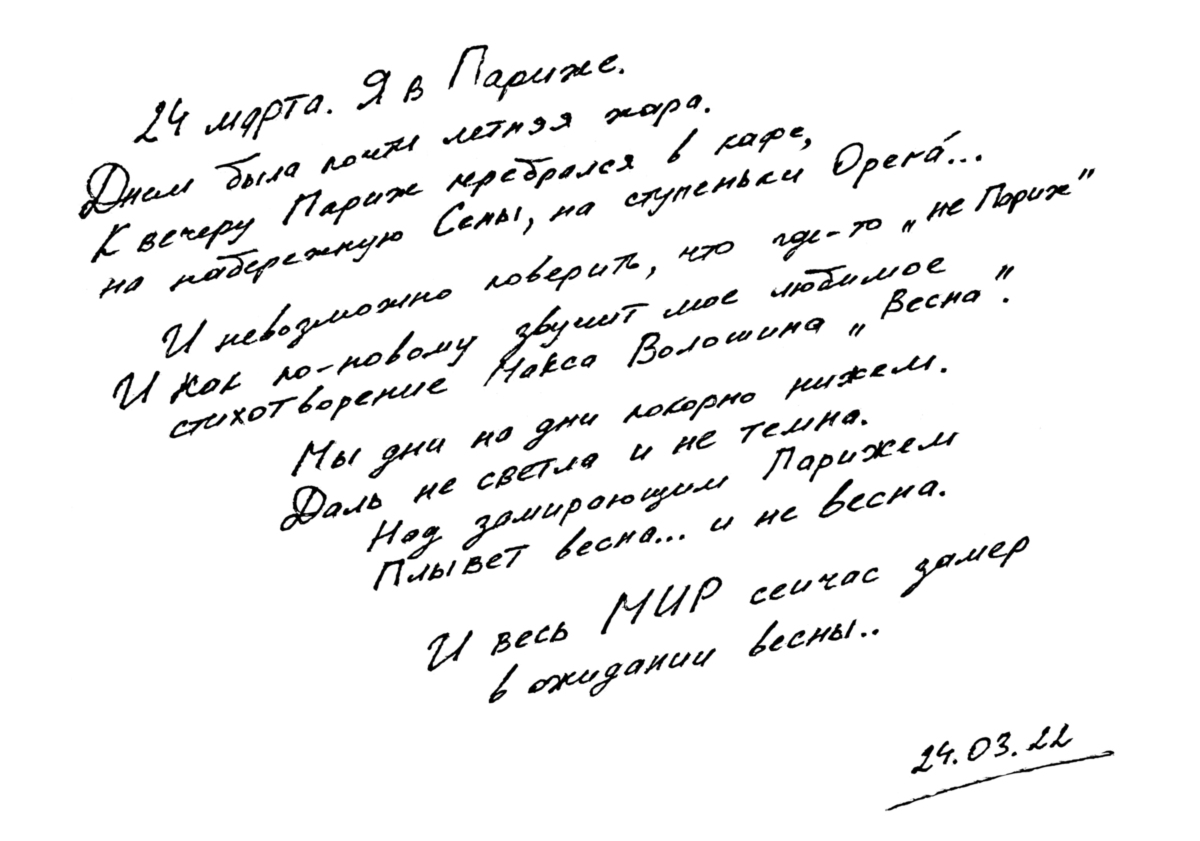 24 марта. Я в Париже.
Днем была почти летняя жара.
К вечеру Париж перебрался в кафе,
на набережную Сены, на ступеньки Opera´...
И невозможно поверить, что где-то „не Париж"
И как по-новому звучит мое любимое
стихотворение Макса Волошина „Весна".
Мы дни на дни покорно нижем.
Даль не светла и не темна.
Над замирающим Парижем
Плывет весна... и не весна.
И весь МИР сейчас замер
в ожидании весны..
24.03.22